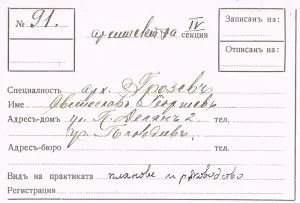 № 91.
IV секция
Записанъ на:
Отписанъ на:
Специалность арх. Грозевъ
Име Светославъ Георгиевъ
Адресъ-домъ ул. П. 2 тел.
гр. Пловдивъ
Адресъ-бюро тел.
Видъ на практиката планове и рѫководство
Регистрация